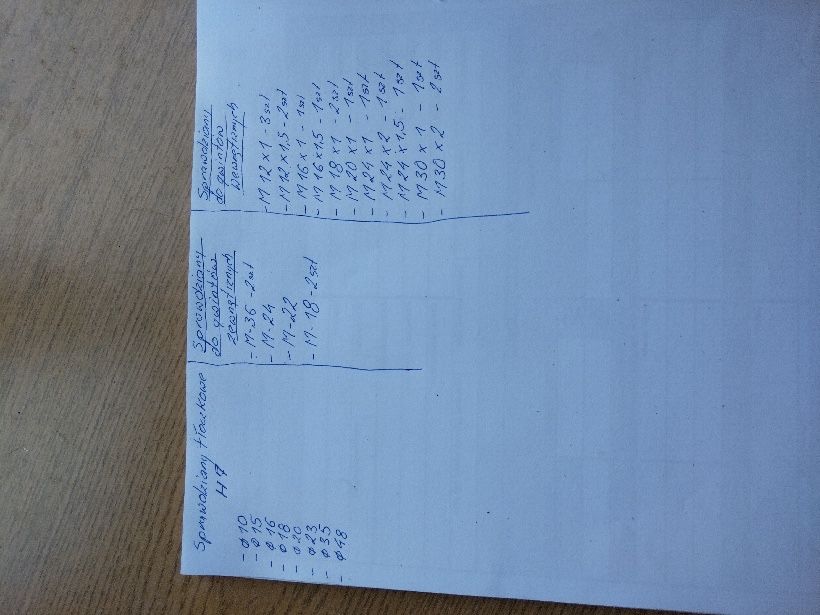 Sprawdziany tłoczkowe
H7
- ø10
- ø15
- ø16
- ø18
- ø20
- ø23
- ø35
- ø48
Sprawdziany
do gwintów
zewnętrznych
- M-36 - 2szt
- M-24
- M-22
- M-18 - 2szt
Sprawdziany
do gwintów
wewnętrznych
- M 12 x 1 - 3szt
- M 12 x 1,5 - 2szt
- M 16 x 1 - 1szt
- M 16 x 1,5 - 1szt
- M 18 x 1 - 2szt
- M 20 x 1 - 1szt
- M 24 x 1 - 1szt
- M 24 x 2 - 1szt
- M 24 x 1,5 - 1szt
- M 30 x 1 - 1szt
- M 30 x 2 - 2szt